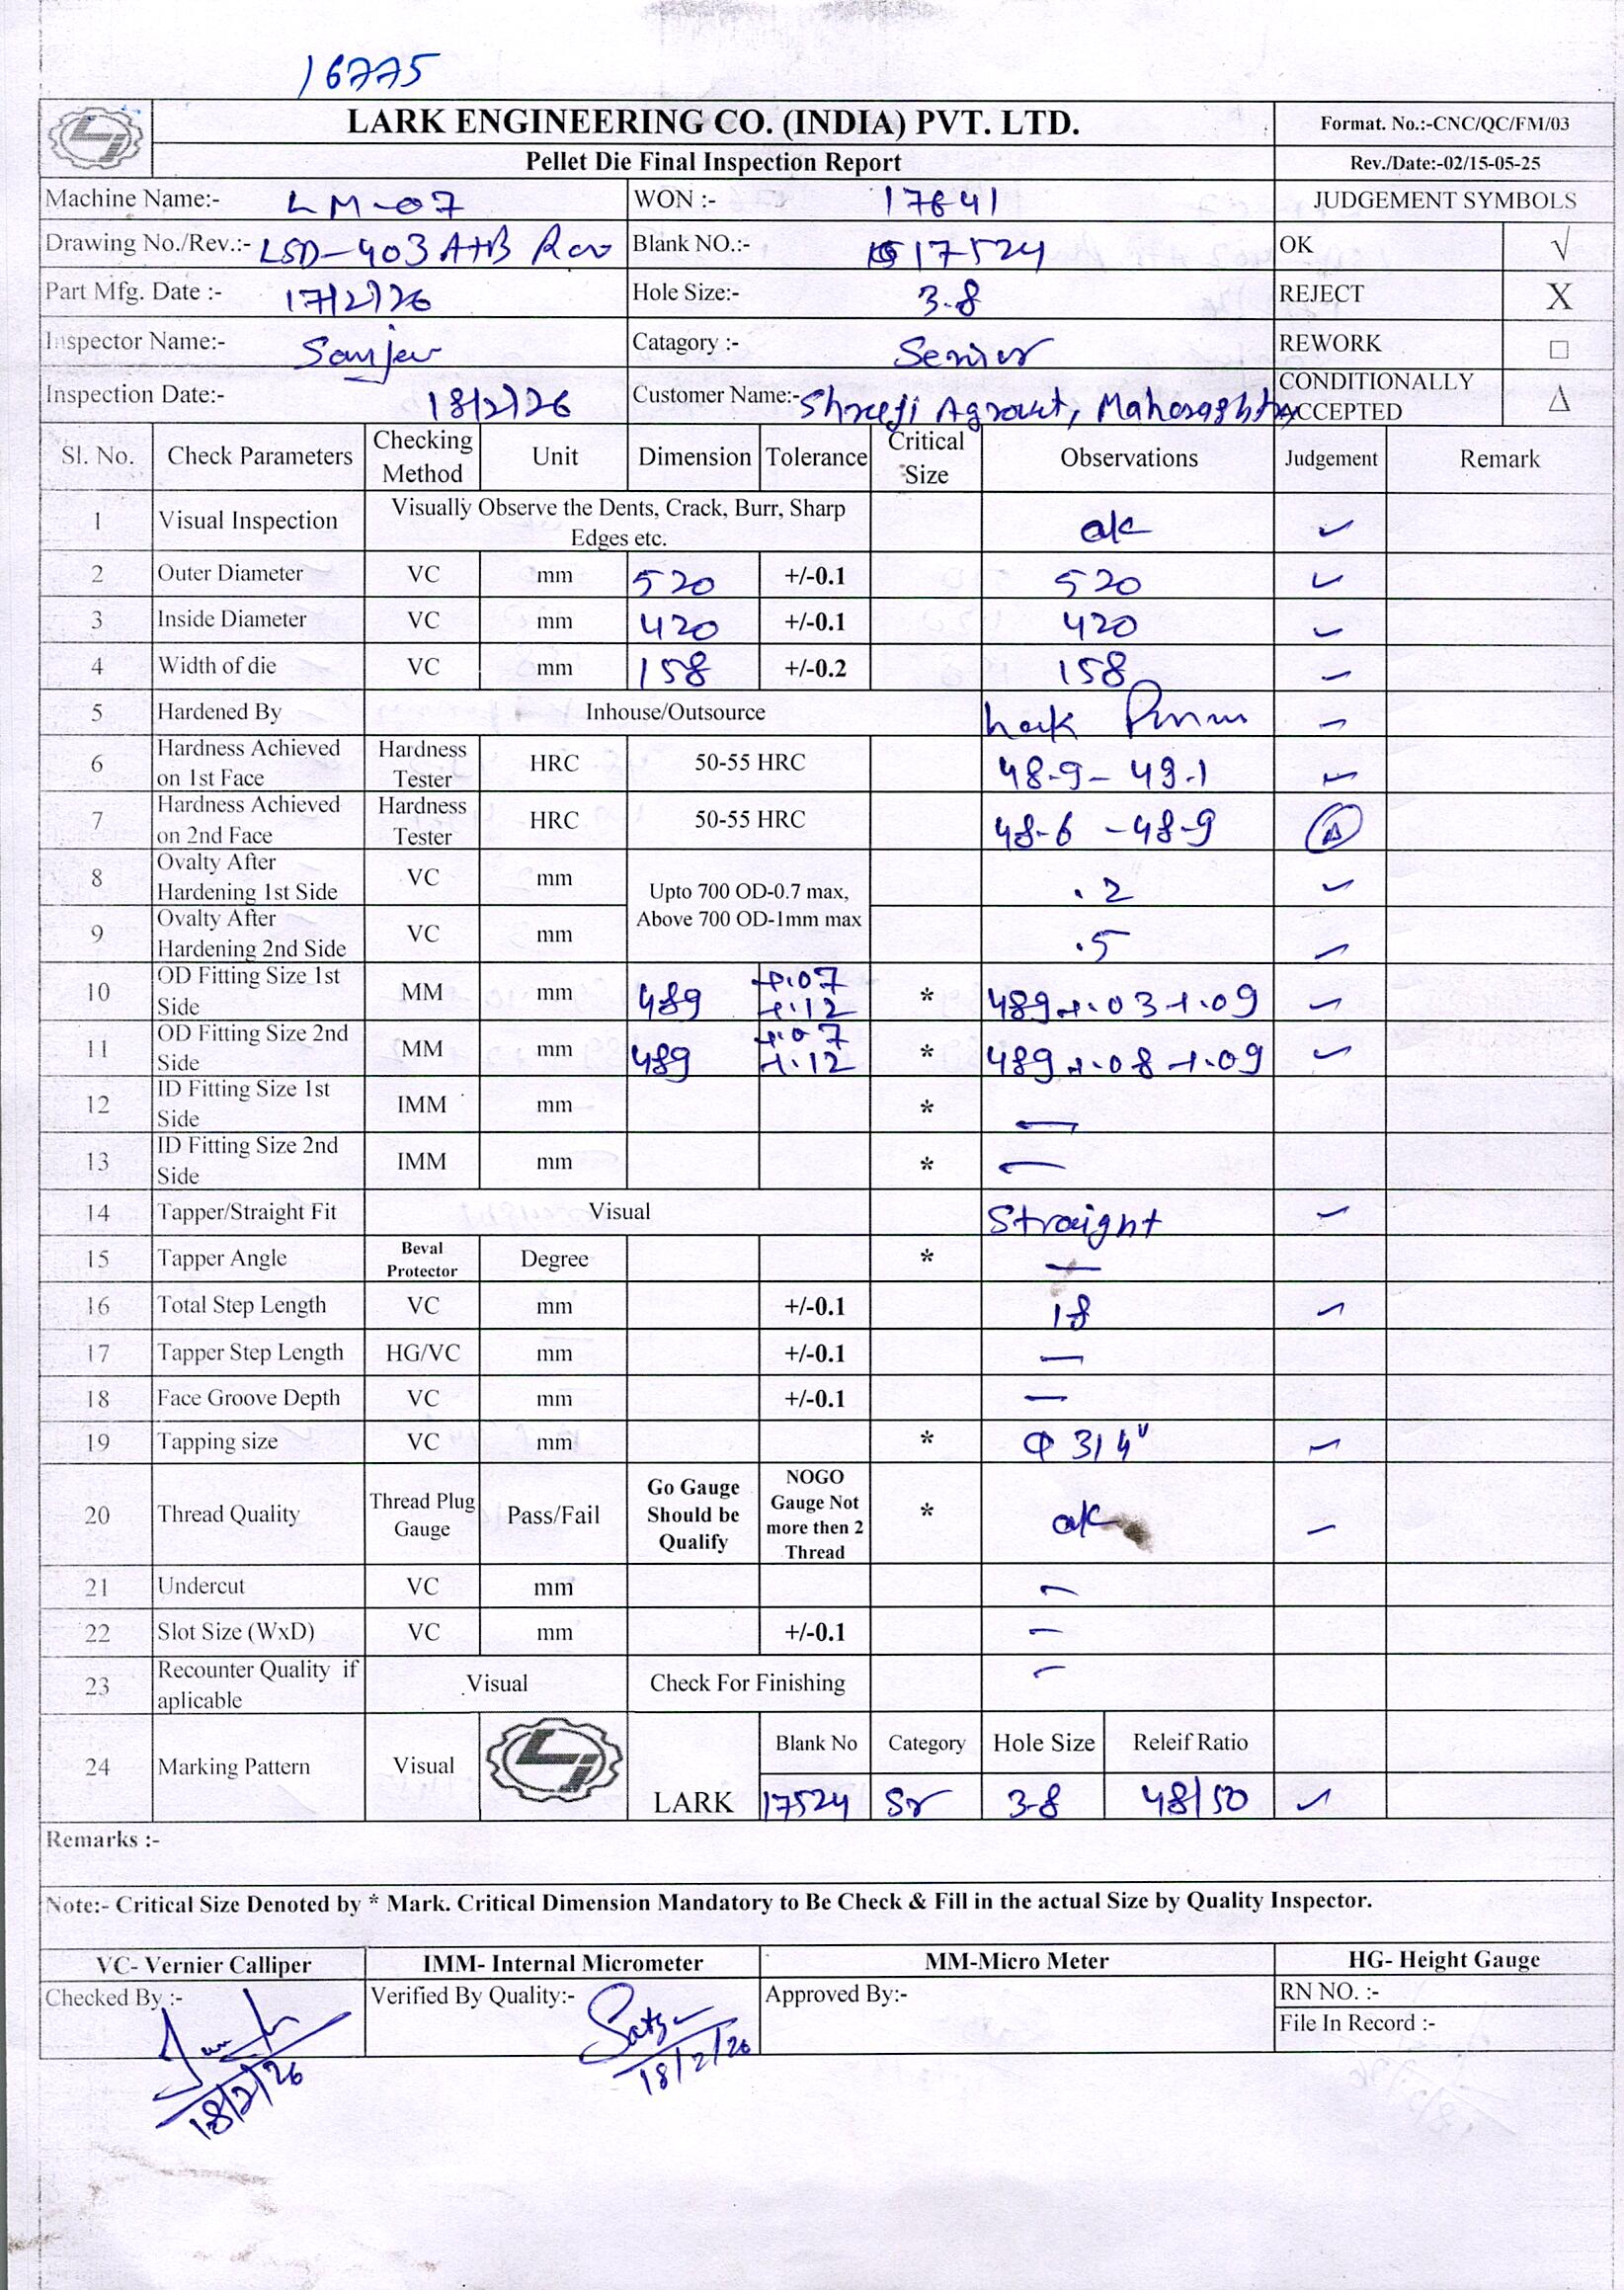 16775
LARK ENGINEERING CO. (INDIA) PVT. LTD.
Format. No.:-CNC/QC/FM/03
Pellet Die Final Inspection Report
Rev./Date:-02/15-05-25
Machine Name:- LM-07 WON :- 17641 JUDGEMENT SYMBOLS
Drawing No./Rev.:- LSD-403 A+B Rev Blank NO.:- 17524 OK √
Part Mfg. Date :- 17/2/26 Hole Size:- 3.8 REJECT X
Inspector Name:- Sanjev Catagory :- Senior REWORK □
Inspection Date:- 18/2/26 Customer Name:- Shreeji Agrovet, Maharashtra CONDITIONALLY ACCEPTED △
Sl. No. Check Parameters Checking Method Unit Dimension Tolerance Critical Size Observations Judgement Remark
1 Visual Inspection Visually Observe the Dents, Crack, Burr, Sharp Edges etc. ok ✓
2 Outer Diameter VC mm 520 +/-0.1 520 ✓
3 Inside Diameter VC mm 420 +/-0.1 420 ✓
4 Width of die VC mm 158 +/-0.2 158 ✓
5 Hardened By Inhouse/Outsource Lark ✓
6 Hardness Achieved on 1st Face Hardness Tester HRC 50-55 HRC 48.9 - 49.1 ✓
7 Hardness Achieved on 2nd Face Hardness Tester HRC 50-55 HRC 48.6 - 48.9 △
8 Ovalty After Hardening 1st Side VC mm Upto 700 OD-0.7 max, Above 700 OD-1mm max .2 ✓
9 Ovalty After Hardening 2nd Side VC mm .5 ✓
10 OD Fitting Size 1st Side MM mm 489 +.07 +.12 * 489 +.03 +.09 ✓
11 OD Fitting Size 2nd Side MM mm 489 +.07 +.12 * 489 +.08 +.09 ✓
12 ID Fitting Size 1st Side IMM mm * —
13 ID Fitting Size 2nd Side IMM mm * —
14 Tapper/Straight Fit Visual Straight ✓
15 Tapper Angle Beval Protector Degree * —
16 Total Step Length VC mm +/-0.1 18 ✓
17 Tapper Step Length HG/VC mm +/-0.1 —
18 Face Groove Depth VC mm +/-0.1 —
19 Tapping size VC mm * Φ 3/4" ✓
20 Thread Quality Thread Plug Gauge Pass/Fail Go Gauge Should be Qualify NOGO Gauge Not more then 2 Thread * ok ✓
21 Undercut VC mm —
22 Slot Size (WxD) VC mm +/-0.1 —
23 Recounter Quality if aplicable Visual Check For Finishing —
24 Marking Pattern Visual LARK Blank No Category Hole Size Releif Ratio
17524 Sr 3.8 48/50 ✓
Remarks :-
Note:- Critical Size Denoted by * Mark. Critical Dimension Mandatory to Be Check & Fill in the actual Size by Quality Inspector.
VC- Vernier Calliper IMM- Internal Micrometer MM-Micro Meter HG- Height Gauge
Checked By :- Verified By Quality:- Approved By:- RN NO. :-
File In Record :-
18/2/26 18/2/26